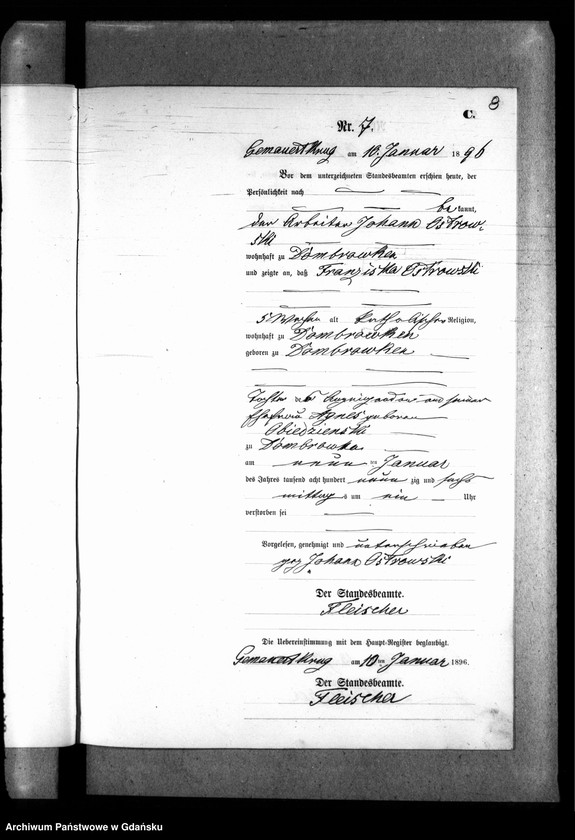 8
C.
Nr. 7.
Gemauert Krug am 10. Januar 1896
Vor dem unterzeichneten Standesbeamten erschien heute, der
Persönlichkeit nach
be kannt,
der Arbeiter Johann Ostrow-
ski
wohnhaft zu Dombrowken
und zeigte an, daß Franziska Ostrowski
5 Wochen alt katholischer Religion,
wohnhaft zu Dombrowken
geboren zu Dombrowken
Tochter des Anzeigenden und seiner
Ehefrau Agnes geborene
Obiedzienski
zu Dombrowken
am neunten Januar
des Jahres tausend acht hundert neunzig und sechs
mittags um ein Uhr
verstorben sei
Vorgelesen, genehmigt und unterschrieben
gez Johann Ostrowski
Der Standesbeamte.
Fleischer
Die Uebereinstimmung mit dem Haupt-Register beglaubigt.
Gemauert Krug am 10ten Januar 1896.
Der Standesbeamte.
Fleischer
Archiwum Państwowe w Gdańsku